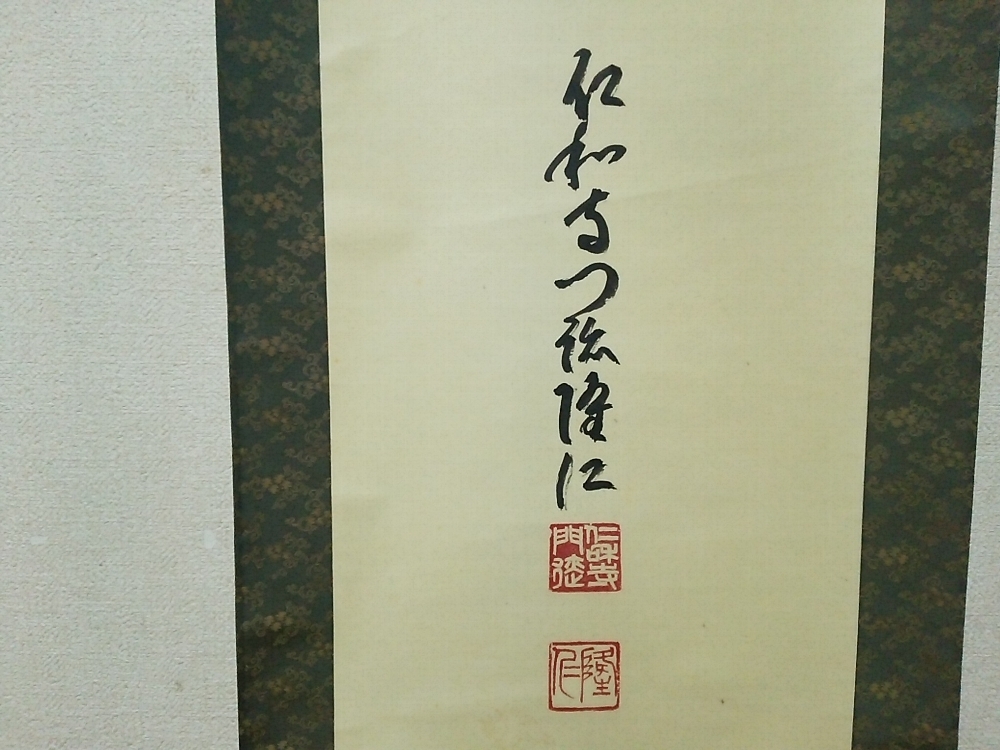 仁和寺門跡隆仁
仁和寺門跡
隆仁